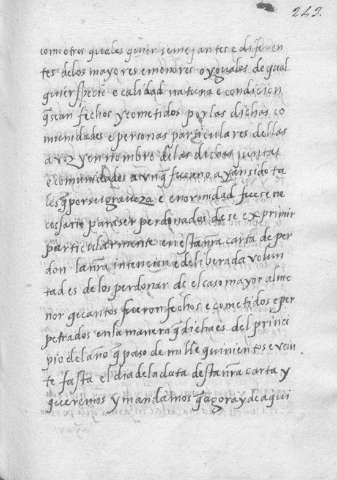 243.
como otros quales quier semejantes e diferen
tes de los mayores e menores o yguales de qual
quier specie e calidad natura e condicion
q̄ sean fechos y cometidos por las dichas co
munidades e personas particulares dellas
a voz y en nombre de las dichas juntas
e comunidades a vnq̄ fuesen o ayan sido ta
les q̄ por su graveza e enormidad fuese ne
cesario para ser perdonados de se exprimir
particularmente en esta nr̄a carta de per
don la nr̄a intencion e deliberada volun
tad es de los perdonar de el caso mayor al me
nor q̄ e cantos fueron fechos e cometidos e per
petrados en la manera q̄ dicha es del princi
pio del año q̄ paso de mille quinientos e vein
te fasta el dia de la data desta nr̄a carta y
queremos y mandamos q̄ agora y de aqui